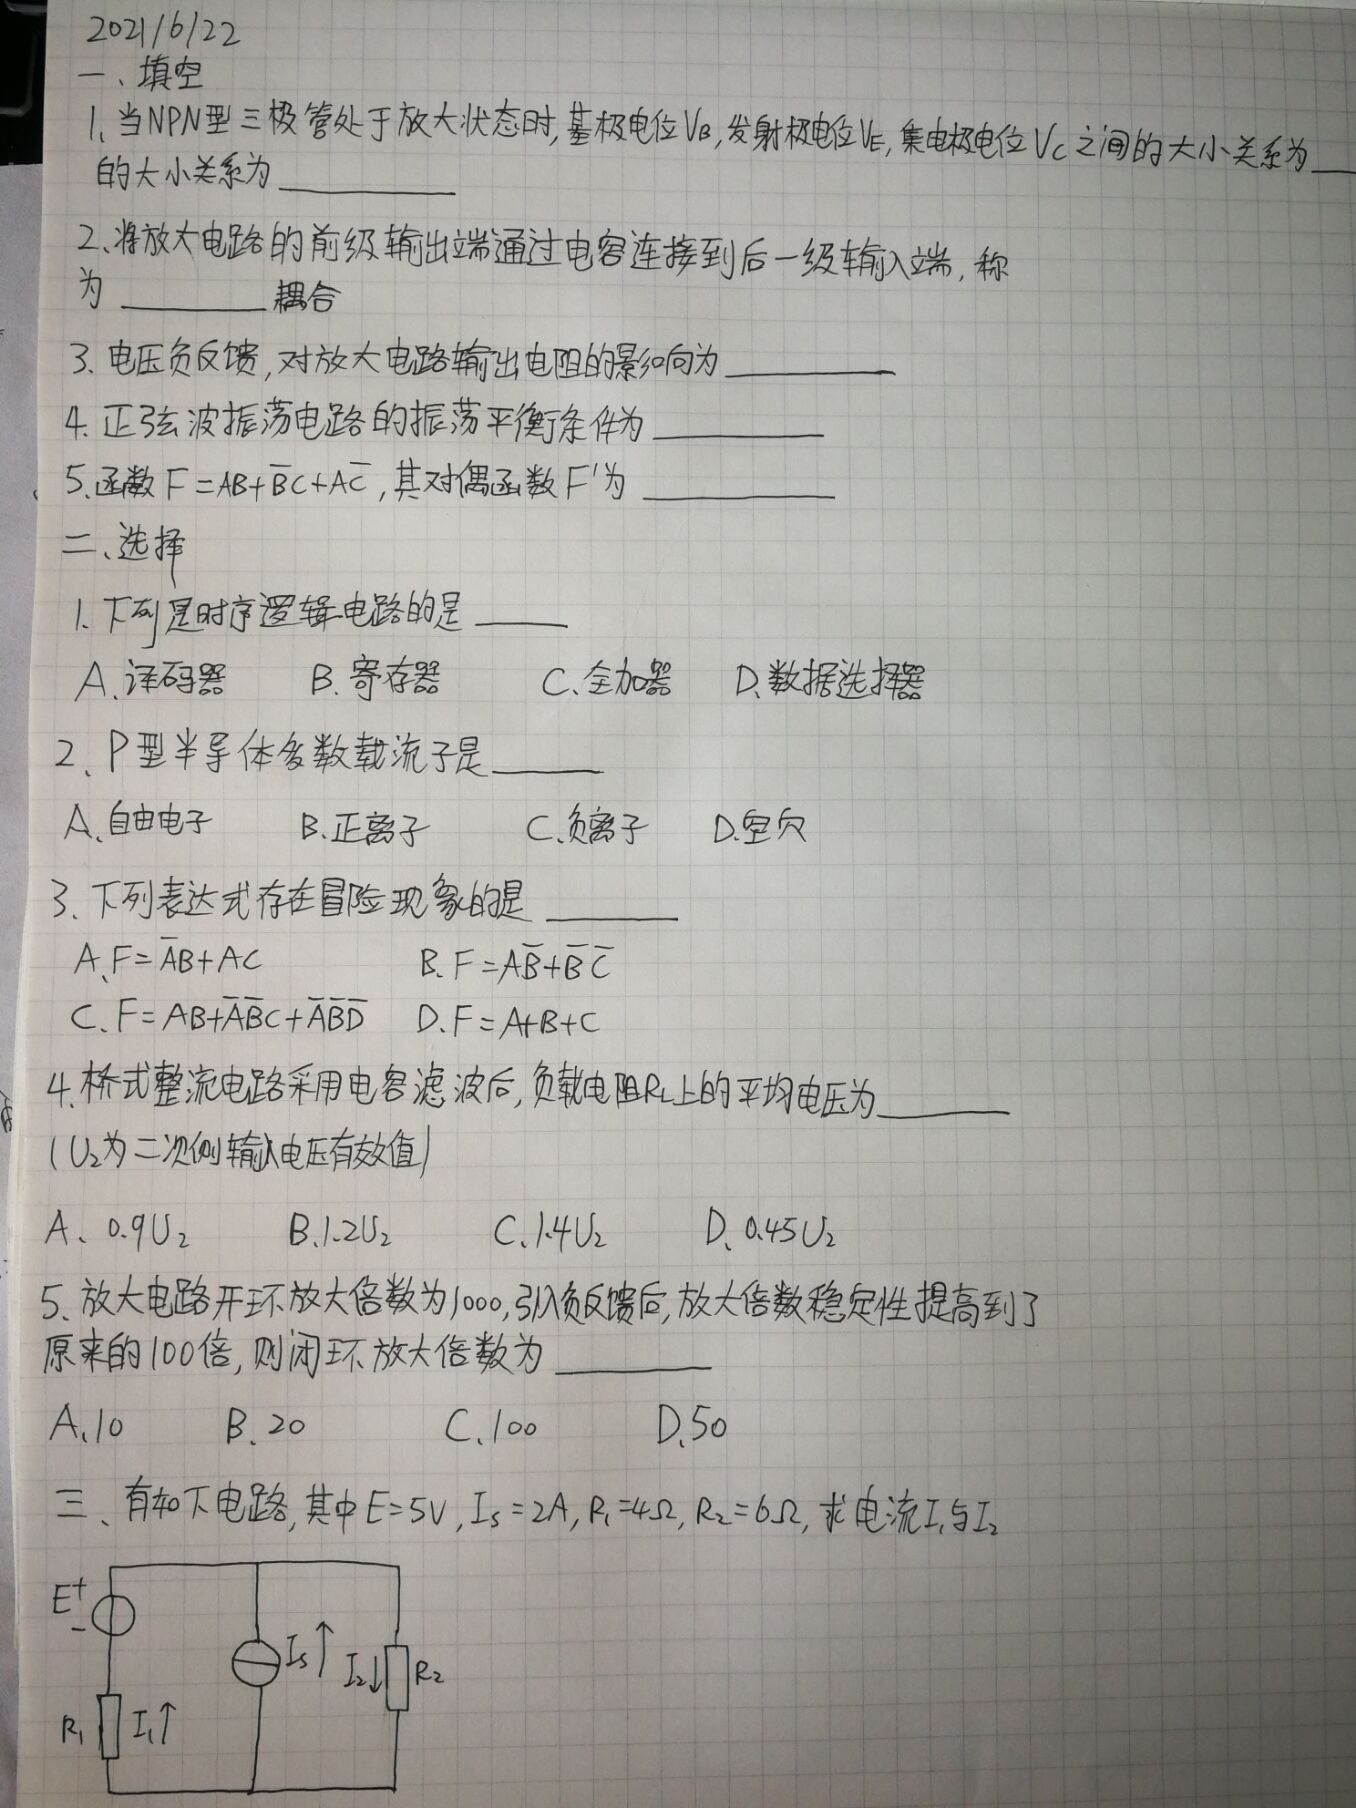 2021/6/22
一、填空
1、当NPN型三极管处于放大状态时,基极电位VB,发射极电位VE,集电极电位VC之间的大小关系为
的大小关系为
2、将放大电路的前级输出端通过电容连接到后一级输入端,称
为 耦合
3、电压负反馈,对放大电路输出电阻的影响为
4、正弦波振荡电路的振荡平衡条件为
5、函数F=AB+B̅C+AC̅,其对偶函数F'为
二、选择
1、下列是时序逻辑电路的是
A、译码器 B、寄存器 C、全加器 D、数据选择器
2、P型半导体多数载流子是
A、自由电子 B.正离子 C、负离子 D.空穴
3、下列表达式存在冒险现象的是
A、F=A̅B+AC B、F=AB̅+B̅C̅
C、F=AB+A̅B̅C+A̅B̅D̅ D、F=A+B+C
4、桥式整流电路采用电容滤波后,负载电阻RL上的平均电压为
(U2为二次侧输入电压有效值)
A、0.9U2 B、1.2U2 C、1.4U2 D、0.45U2
5、放大电路开环放大倍数为1000,引入负反馈后,放大倍数稳定性提高到了
原来的100倍,则闭环放大倍数为
A、10 B、20 C、100 D、50
三、有如下电路,其中E=5V,Is=2A,R1=4Ω,R2=6Ω,求电流I1与I2
E + -
Is I2 R2
R1 I1